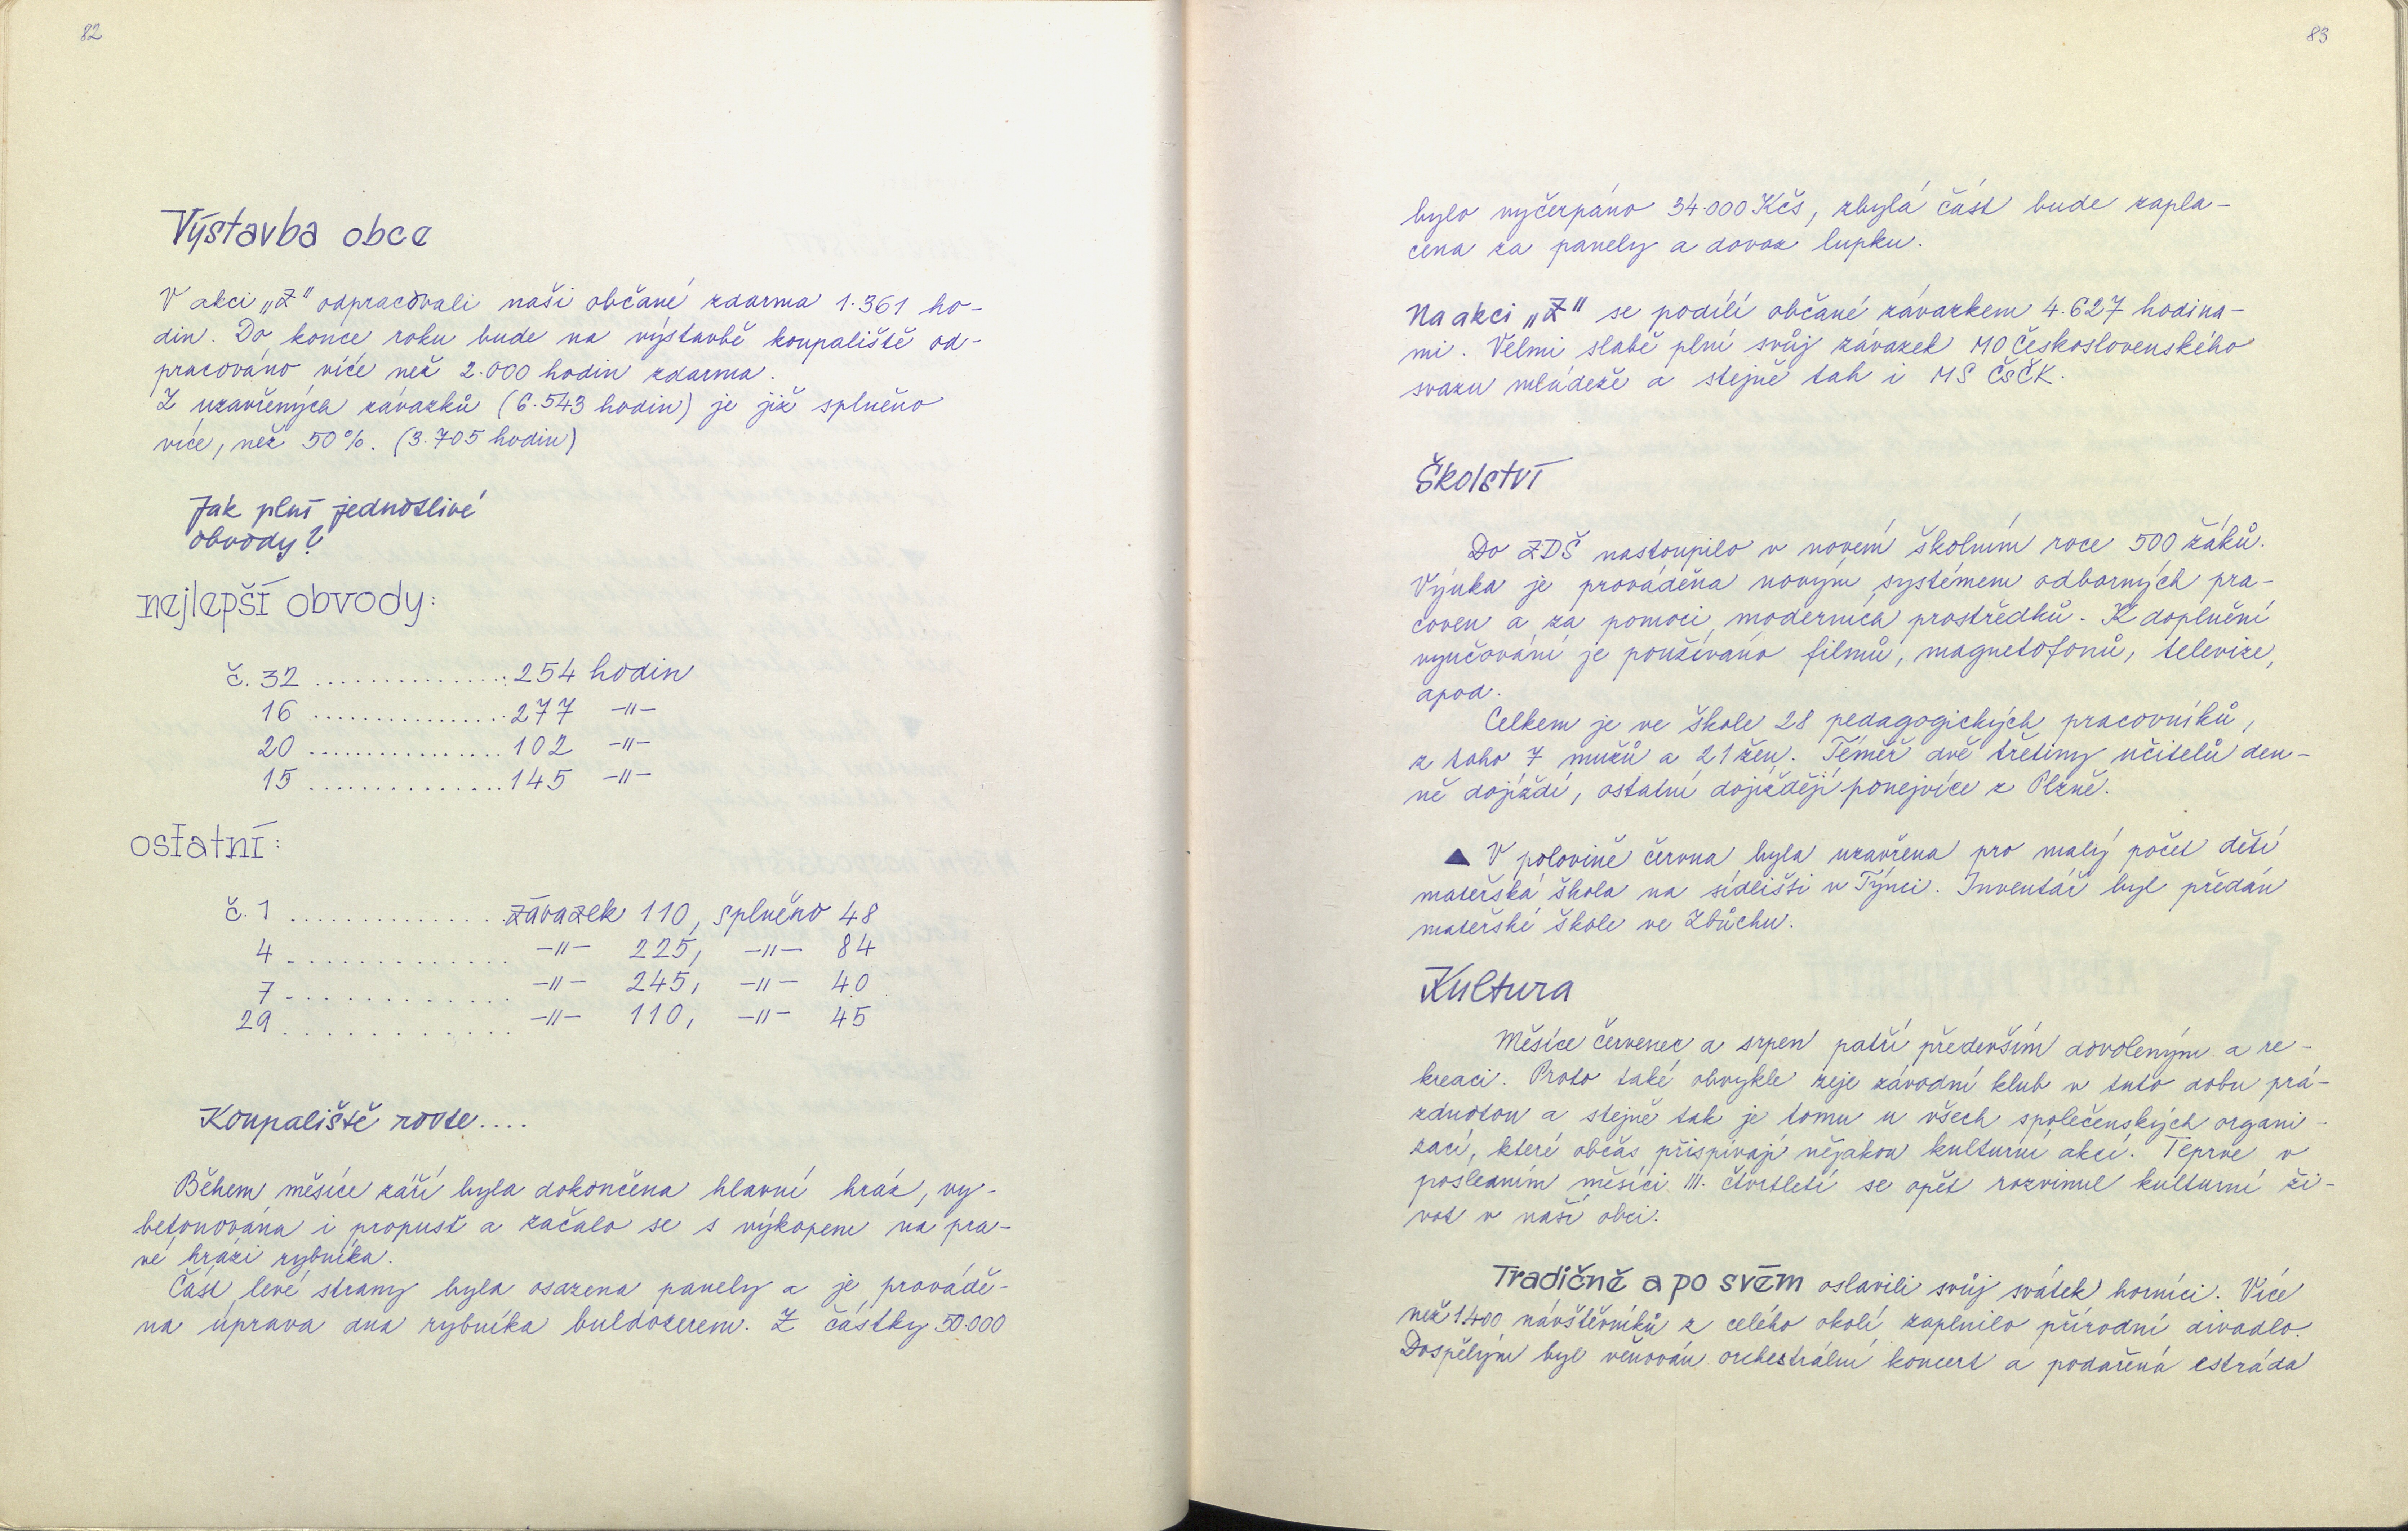 82
Výstavba obce
V akci „Z" odpracovali naši občané zdarma 1.361 ho-
din. Do konce roku bude na výstavbě koupaliště od-
pracováno více než 2.000 hodin zdarma.
Z uzavřených závazků (6.543 hodin) je již splněno
více, než 50%. (3.705 hodin)
Jak plní jednotlivé
obvody?
nejlepší obvody:
č. 32 ............... 254 hodin
16 ............... 277 -"-
20 ............... 102 -"-
15 ............... 145 -"-
ostatní:
č. 1 ............... závazek 110, splněno 48
4 ............... -"- 225, -"- 84
7 ............... -"- 245, -"- 40
29 ............... -"- 110, -"- 45
Koupaliště roste....
Během měsíce září byla dokončena hlavní hráz, vy-
betonována i propusť a začalo se s výkopem na pra-
vé hrázi rybníka.
Část levé strany byla osazena panely a je provádě-
na úprava dna rybníka buldozerem. Z částky 50.000
83
bylo vyčerpáno 34.000 Kčs, zbylá část bude zapla-
cena za panely a dovoz lupku.
Na akci „Z" se podílí občané závazkem 4.627 hodina-
mi. Velmi slabě plní svůj závazek MO Československého
svazu mládeže a stejně tak i MS ČsČK.
Školství
Do ZDŠ nastoupilo v novém školním roce 500 žáků.
Výuka je prováděna novým systémem odborných pra-
coven a za pomoci moderních prostředků. K doplnění
vyučování je používáno filmů, magnetofonů, televize,
apod.
Celkem je ve škole 28 pedagogických pracovníků,
z toho 7 mužů a 21 žen. Téměř dvě třetiny učitelů den-
ně dojíždí, ostatní dojíždějí ponejvíce z Plzně.
▲ V polovině června byla uzavřena pro malý počet dětí
mateřská škola na sídlišti v Týnci. Inventář byl předán
mateřské škole ve Zbůchu.
Kultura
Měsíce červenec a srpen patří především dovoleným a re-
kreaci. Proto také obvykle zeje závodní klub v tuto dobu prá-
zdnotou a stejně tak je tomu u všech společenských organi-
zací, které občas přispívají nějakou kulturní akcí. Teprve v
posledním měsíci III. čtvrtletí se opět rozvinul kulturní ži-
vot v naší obci.
Tradičně a po svém oslavili svůj svátek horníci. Více
než 1.400 návštěvníků z celého okolí zaplnilo přírodní divadlo.
Dospělým byl věnován orchestrální koncert a podařená estráda